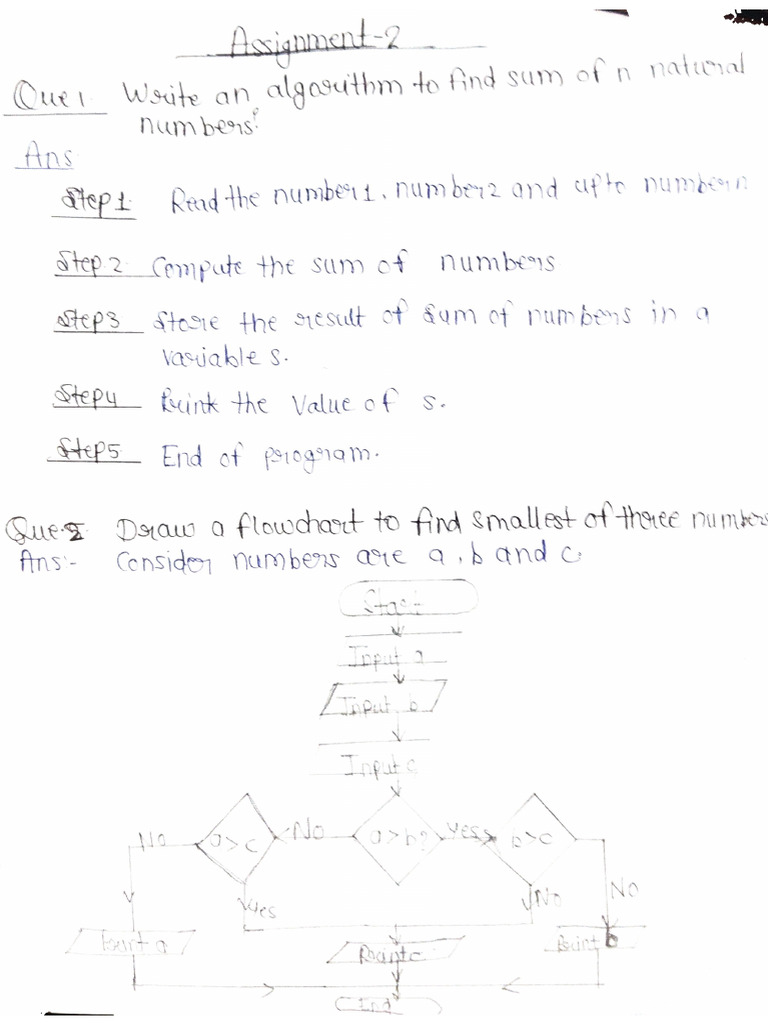 Assignment-2
Que 1. Write an algorithm to find sum of n natural
numbers?
Ans
Step 1 Read the number1, number2 and upto numbern
Step 2 Compute the sum of numbers
Step3 Store the result of sum of numbers in a
variable s.
Step4 Print the value of s.
Step5 End of program.
Que.2 Draw a flowchart to find smallest of three numbers
Ans:- Consider numbers are a, b and c.
Start
Input a
Input b
Input c
No a>c No a>b? Yes b>c
Yes No No
Print a Print c Print b
End